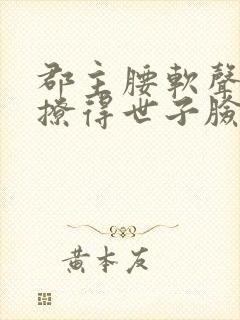 郡主腰軟聲
撩得世子臉
黃本友